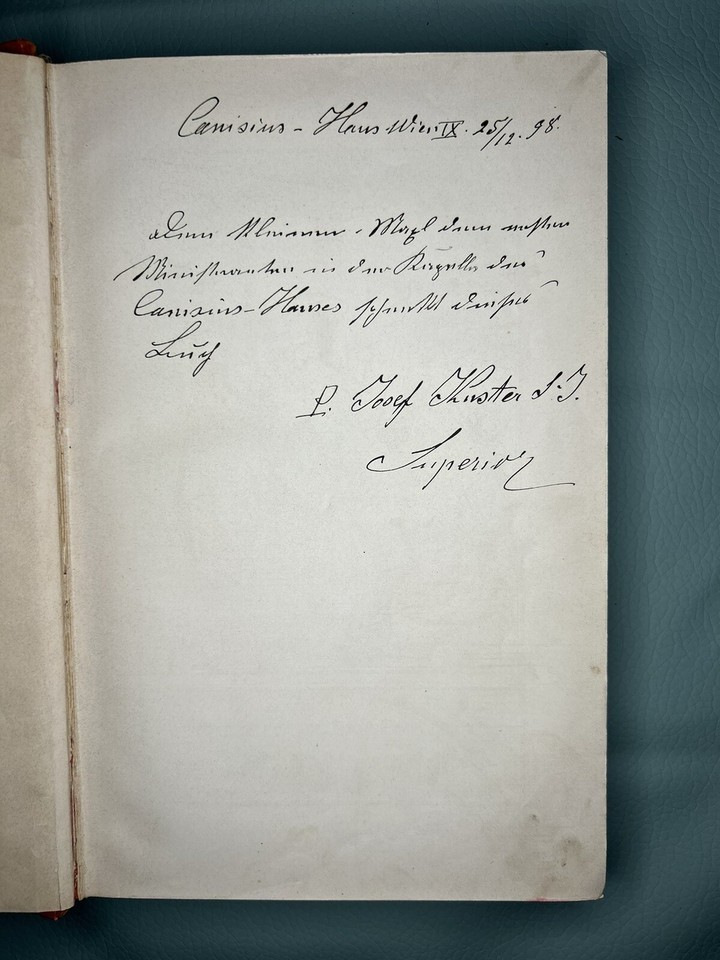 Canisius-Haus Wien IX. 25/12. 98.
Dem kleinen Maxl dem ersten
Ministranten in der Kapelle des
Canisius-Hauses schenkt dieses
Buch
P. Josef Kuster S. J.
Superior